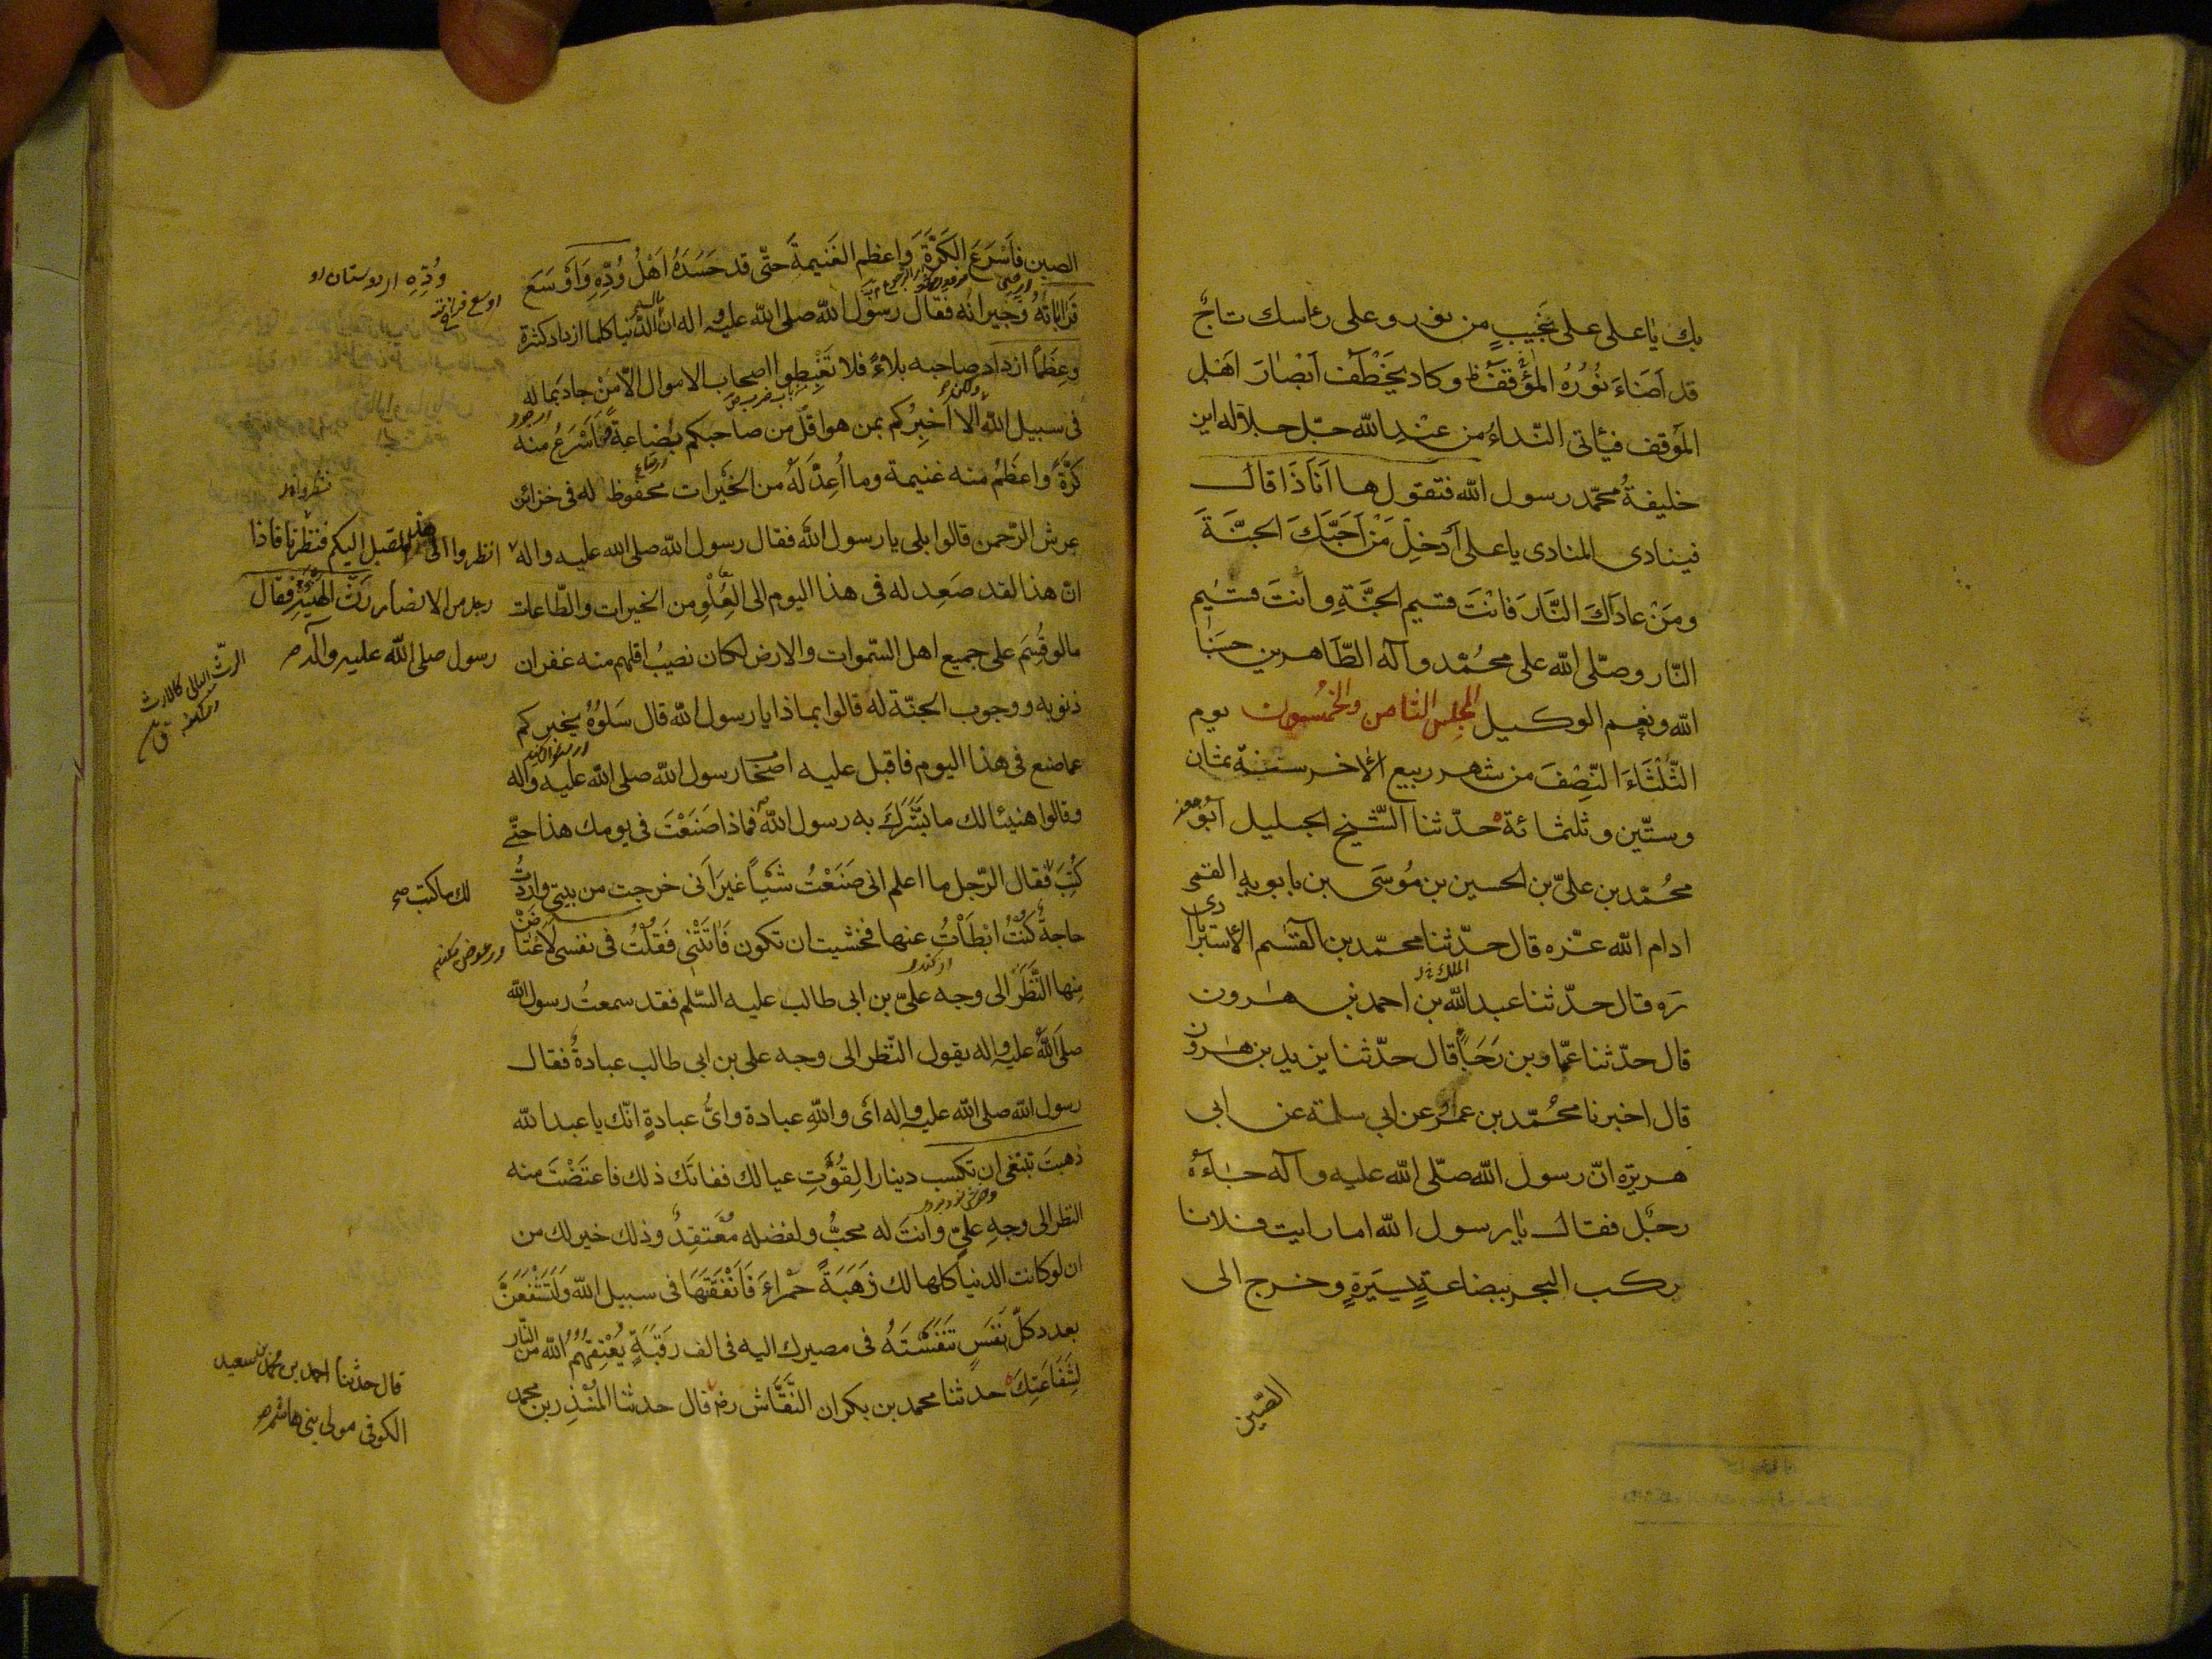 بك يا على على نجيب من نور و على رءاسك تاج
قد اضاء نوره الموقف و كاد يخطف ابصار اهل
الموقف فيئاتى النداء من عند الله جل جلاله اين
خليفة محمد رسول الله فتقول ها انا ذا قال
فينادى المنادى يا على ادخل من احبك الجنة
ومن عاداك النار فانت قسيم الجنة و انت قسيم
النار و صلى الله على محمد و آله الطاهرين حسبنا
الله و نعم الوكيل المجلس الثامن والخمسون يوم
الثلثاء النصف من شهر ربيع الاخر سنة ثمان
وستين و ثلثمائة حدثنا الشيخ الجليل ابو جعفر
محمد بن على بن الحسين بن موسى بن بابويه القمى
ادام الله عزه قال حدثنا محمد بن القسم الاسترابادى
ره قال حدثنا عبد الملك بن احمد بن هرون
قال حدثنا عمار بن رجا قال حدثنا يزيد بن هرون
قال اخبرنا محمد بن عمرو عن ابي سلمة عن ابى
هريره ان رسول الله صلى الله عليه و آله جاءه
رجل فقال يا رسول الله اما رايت فلانا
ركب البحر ببضاعة يسيرة و خرج الى
الصين
الصين فاسرع الكرة و اعظم الغنيمة حتى قد حسده اهل وده و اوسع
قراباته و جيرانه فقال رسول الله صلى الله عليه و اله ان الدنيا كلما ازداد كثرة
وعظما ازداد صاحبه بلاء فلا تغبطوا اصحاب الاموال الا من جاد بماله
فى سبيل الله الا اخبركم بمن هو اقل من صاحبكم بضاعة و اسرع منه
كرة و اعظم منه غنيمة وما اعد له من الخيرات محفوظ له فى خزائن
عرش الرحمن قالوا بلى يا رسول الله فقال رسول الله صلى الله عليه واله
انظروا الى هذا المقبل اليكم فنظرنا فاذا
رجل من الانصار رث الهيئة فقال
رسول صلى الله عليه و آله
ان هذا لقد صعد له فى هذا اليوم الى العلو من الخيرات والطاعات
مالو قسم على جميع اهل السموات والارض لكان نصيب اقلهم منه غفران
ذنوبه و وجوب الجنة له قالوا بماذا يا رسول الله قال سلوه يخبركم
عما صنع فى هذا اليوم فاقبل عليه اصحاب رسول الله صلى الله عليه واله
وقالوا هنيئا لك ما بشرك به رسول الله فماذا صنعت فى يومك هذا حتى
كتب فقال الرجل ما اعلم انى صنعت شيئا غير انى خرجت من بيتى واردت
لك ما كتب صح
حاجة كنت ابطات عنها فخشيت ان تكون فاتتنى فقلت فى نفسى لاعتاضن
منها النظر الى وجه على بن ابى طالب عليه السلم فقد سمعت رسول الله
صلى الله عليه و اله يقول النظر الى وجه على بن ابى طالب عبادة فقال
رسول الله صلى الله عليه و اله اى والله عبادة واى عبادة انك يا عبد الله
ذهبت تبتغى ان تكسب دينارا لقوت عيالك ففاتك ذلك فاعتضت منه
النظر الى وجه على وانت له محب ولفضله معتقد وذلك خير لك من
ان لو كانت الدنيا كلها لك ذهبة حمراء فانفقتها فى سبيل الله ولتشفعن
بعدد كل نفس تنفسته فى مصيرك اليه فى الف رقبة يعتقهم الله من النار
لشفاعتك حدثنا محمد بن بكران النقاش ره قال حدثنا المنذر بن محمد
قال حدثنا احمد بن محمد بن سعيد
الكوفى مولى بنى هاشم